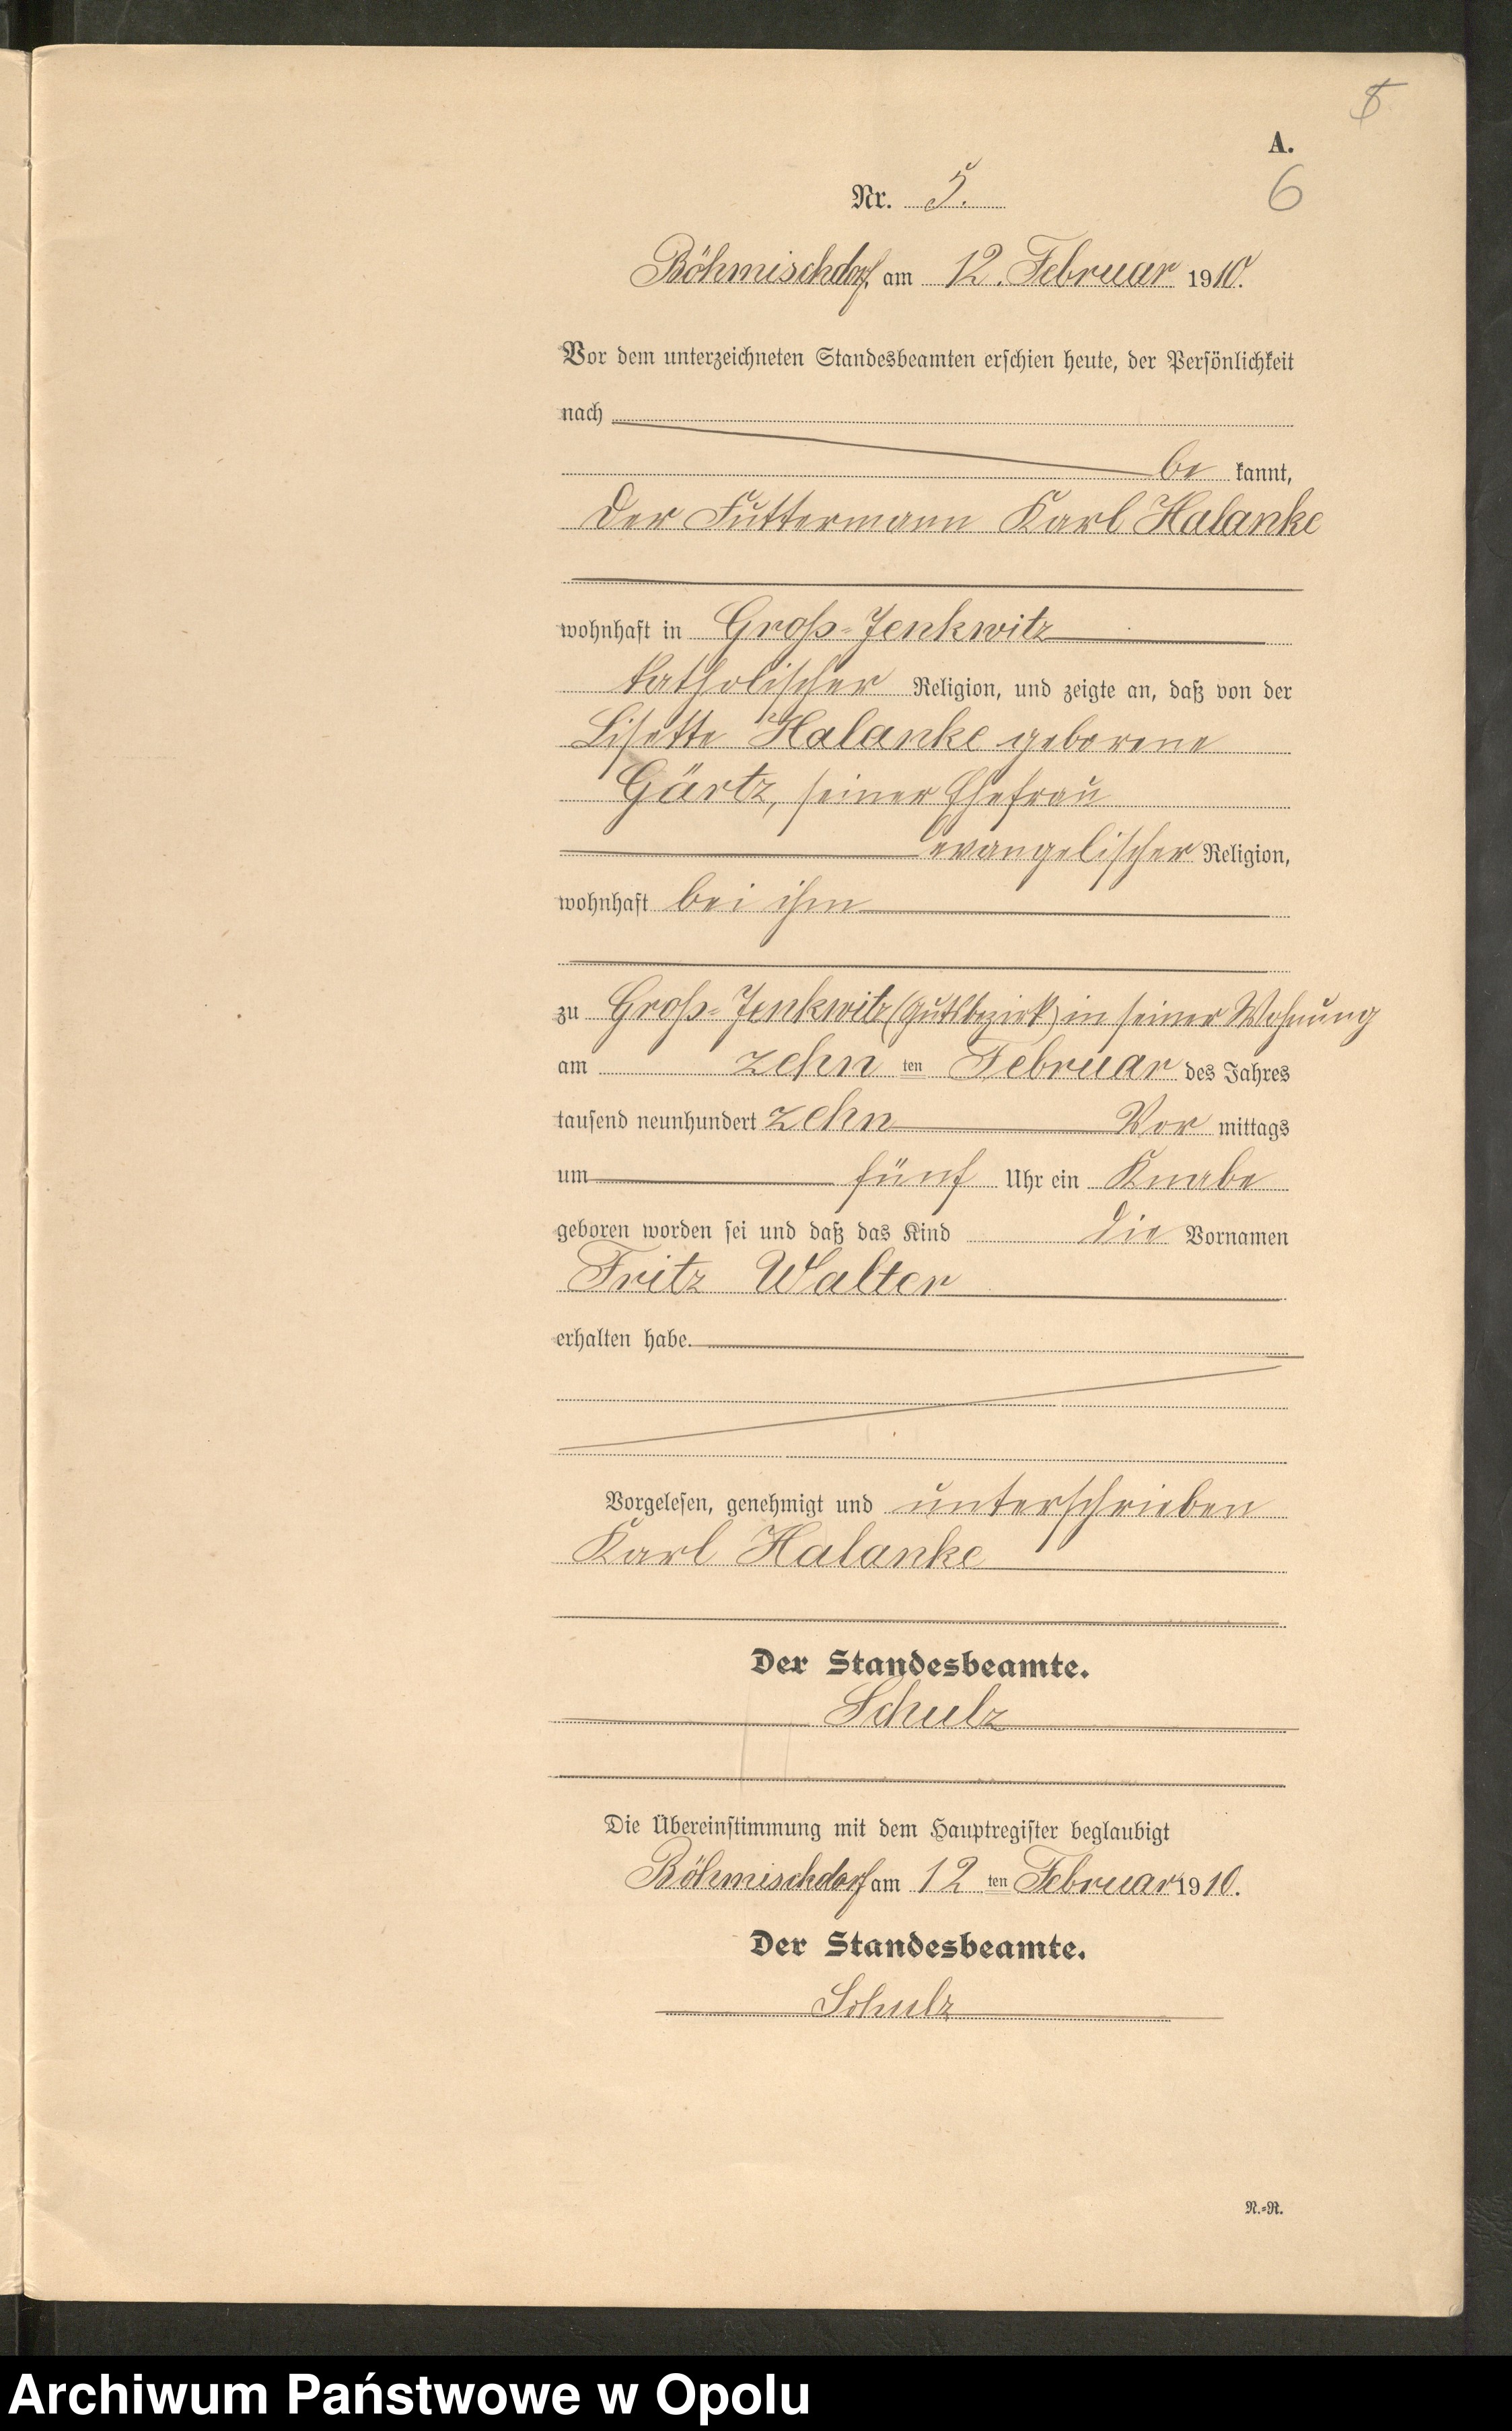 A.
6
Nr. 5.
Böhmischdorf, am 12. Februar 1910.
Vor dem unterzeichneten Standesbeamten erschien heute, der Persönlichkeit
nach
be kannt,
der Futtermann Karl Halanke
wohnhaft in Groß-Jenkwitz
katholischer Religion, und zeigte an, daß von der
Lisette Halanke geborene
Gärtz, seiner Ehefrau
evangelischer Religion,
wohnhaft bei ihm
zu Groß-Jenkwitz (Gutsbezirk) in seiner Wohnung
am zehn ten Februar des Jahres
tausend neunhundert zehn Vor mittags
um fünf Uhr ein Knabe
geboren worden sei und daß das Kind die Vornamen
Fritz Walter
erhalten habe.
Vorgelesen, genehmigt und unterschrieben
Karl Halanke
Der Standesbeamte.
Schulz
Die Übereinstimmung mit dem Hauptregister beglaubigt
Böhmischdorf am 12 ten Februar 1910.
Der Standesbeamte.
Schulz
N.-R.
Archiwum Państwowe w Opolu